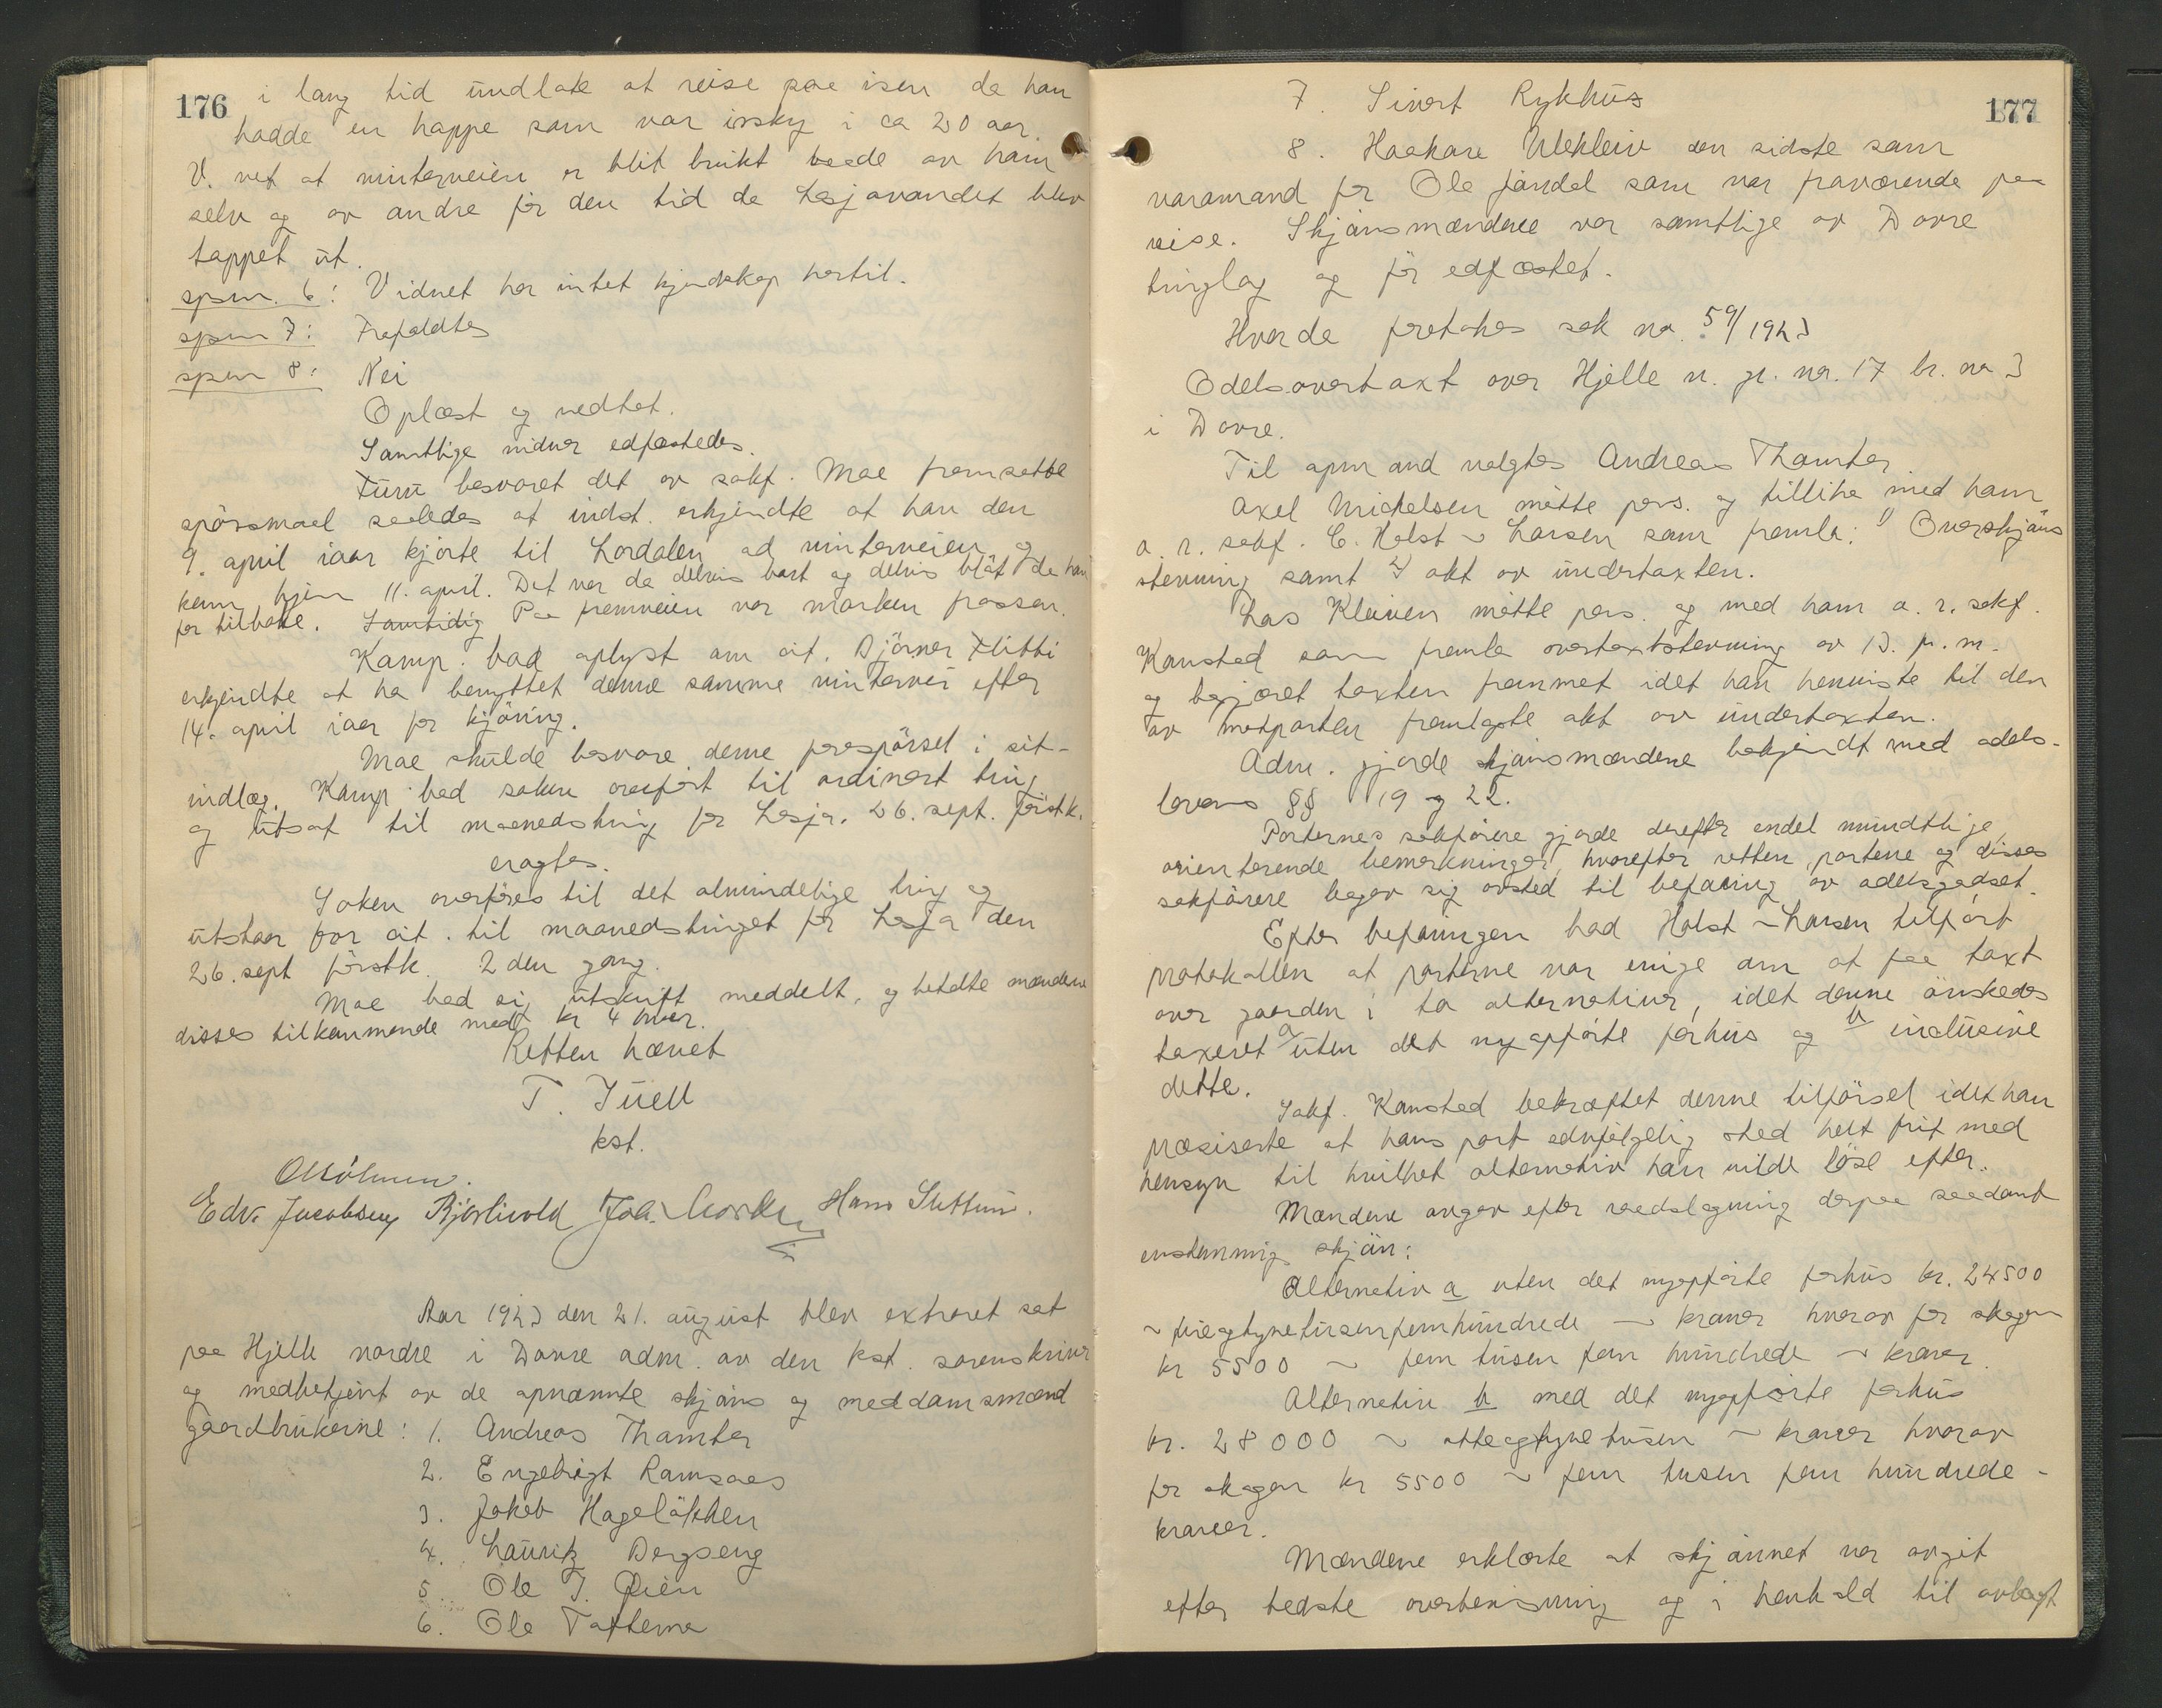 176
i lang tid undlate at reise paa isen da han
hadde en hoppe som var issky i ca 20 aar.
V. vet at vinterveien er blit brukt baade av ham
selv og av andre før den tid da Lesjavandet blev
tappet ut.
spm. 6: Vidnet har intet kjendskap hertil.
spm 7: Frafaldtes
spm 8: Nei
Oplæst og vedtat.
Samtlige vidner edfæstedes.
Furu besvaret det av sakf. Moe fremsatte
spørsmaal saaledes at indst. erkjendte at han den
9. april iaar kjørte til Lordalen ad vinterveien og
kom hjem 11. april. Det var da delvis bart og delvis blöt da han
for tilbake. Samtidig Paa fremveien var marken frossen.
Kamp. bad oplyst om cit. Bjørner Flitti
erkjendte at ha benyttet denne samme vintervei efter
14. april iaar for kjöring.
Moe skulde besvare denne forespørsel i sit
indlæg. Kamp bad saken overført til ordinært ting
og utsat til maanedsting for Lesja. 26. sept. førstk.
eragtes.
Saken overføres til det almindelige ting og
utstaar for cit. til maanedstinget for Lesja den
26. sept førstk. 2den gang.
Moe bad sig utskrift meddelt, og betalte mændene
disses tilkommende med kr 4 hver.
Retten hævet
T. Juell
kst.
Edv. Jacobsen Bjorlivold Joh. Hans Slettum.
Aar 1923 den 21. august blev extraret sat
paa Hjelle nordre i Dovre adm. av den kst. sorenskriver
og medbetjent av de opnævnte skjøns og meddomsmænd
gaardbrukerne: 1. Andreas Thomter
2. Engebrigt Ramsaas
3. Jakob Hageløkken
4. Lauritz Bergseng
5. Ole J. Øien
6. Ole Toftemo
177
7. Sivert Rykhus
8. Haakon Ulekleiv den sidste som
varamand for Ole Jøndal som var fraværende paa
reise. Skjønsmændene var samtlige av Dovre
tinglag og før edfæstet.
Hvorda foretokes sak no. 59/1923
Odelsovertaxt over Hjelle n. gr. no. 17 br. no 3
i Dovre.
Til opmand valgtes Andreas Thomter.
Axel Michelsen møtte pers. og tillike med ham
o. r. sakf. C. Holst ~ Larsen som fremla: Overskjøns
stevning samt 2) akt av undertaxten.
Lars Kleiven møtte pers. og med ham o. r. sakf.
Kamstad som fremla overtaxtstevning av 13. f. m.
og begjæret taxten fremmet idet han henviste til den
av motparten fremlagte akt av undertaxten.
Adm. gjorde skjønsmændene bekjendt med odels-
lovens §§ 19 og 22.
Parternes sakførere gjorde derefter endel mundtlige
orienterende bemerkninger, hvorefter retten, partene og disses
sakførere begav sig avsted til befaring av odelsgodset.
Efter befaringen bad Holst ~ Larsen tilført
protokollen at parterne var enige om at faa taxt
over gaarden i to alternativer, idet denne ønskedes
taxeret a uten det nyopførte førhus og b inclusive
dette.
Sakf. Kamstad bekræftet denne tilførsel idet han
præsiserte at hans part selvfølgelig stod helt frit med
hensyn til hvilket alternativ han vilde løse efter.
Mændene avgav efter raadslagning derpaa saadant
enstemmig skjøn:
Alternativ a uten det nyopførte forhus kr. 24500
~ fireogtyvetusenfemhundrede ~ kroner hvorav for skogen
kr 5500 ~ fem tusen fem hundrede ~ kroner.
Alternativ b. med det nyopførte forhus
kr. 28000 ~ otteogtyvetusen ~ kroner hvorav
for skogen kr 5500 ~ fem tusen fem hundrede -
kroner.
Mændene erklærte at skjønnet var avgit
efter bedste overbevisning og i henhold til avlagt